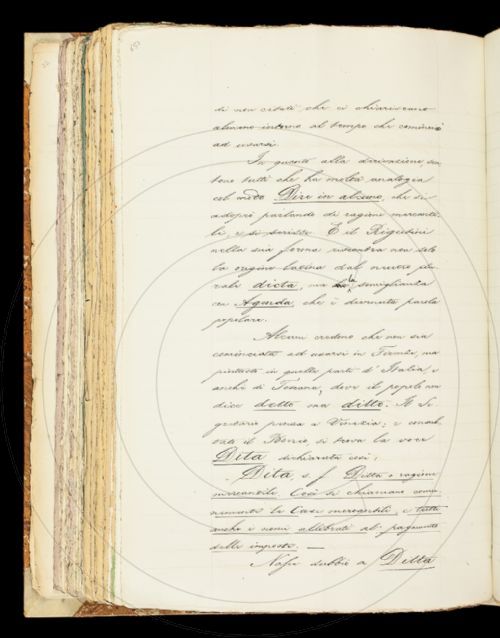 di non citati, che ci chiariscano
almeno intorno al tempo che cominciò
ad usarsi.
In quanto alla derivazione, so-
tutti che ha molta analogia
col modo Dire in alcuno, che si
adopra parlando di ragioni mercanti-
li, e si scrisse. E il Rigutini
nella sua forma riscontra non solo
la origine latina dal neutro plu-
rale dicta, ma la somiglianza
con Agenda, che è divenuta parola
popolare.
Alcuni credono che non sia
cominciata ad usarsi in Firenze, ma
piuttosto in quella parte d'Italia, e
anche di Toscana, dove il popolo non
dice detto ma ditto. Il Ri-
gutini pensa a Venezia; e consul-
tato il Boerio, si trova la voce
Dita dichiarata così:
Dita, s. f. Ditta o ragione
mercantile. Così si chiamano comu-
nemente le Case mercantili, e tutti
anche i nomi allibrati al pagamento
delle imposte. —
Nasce dubbio se Ditta